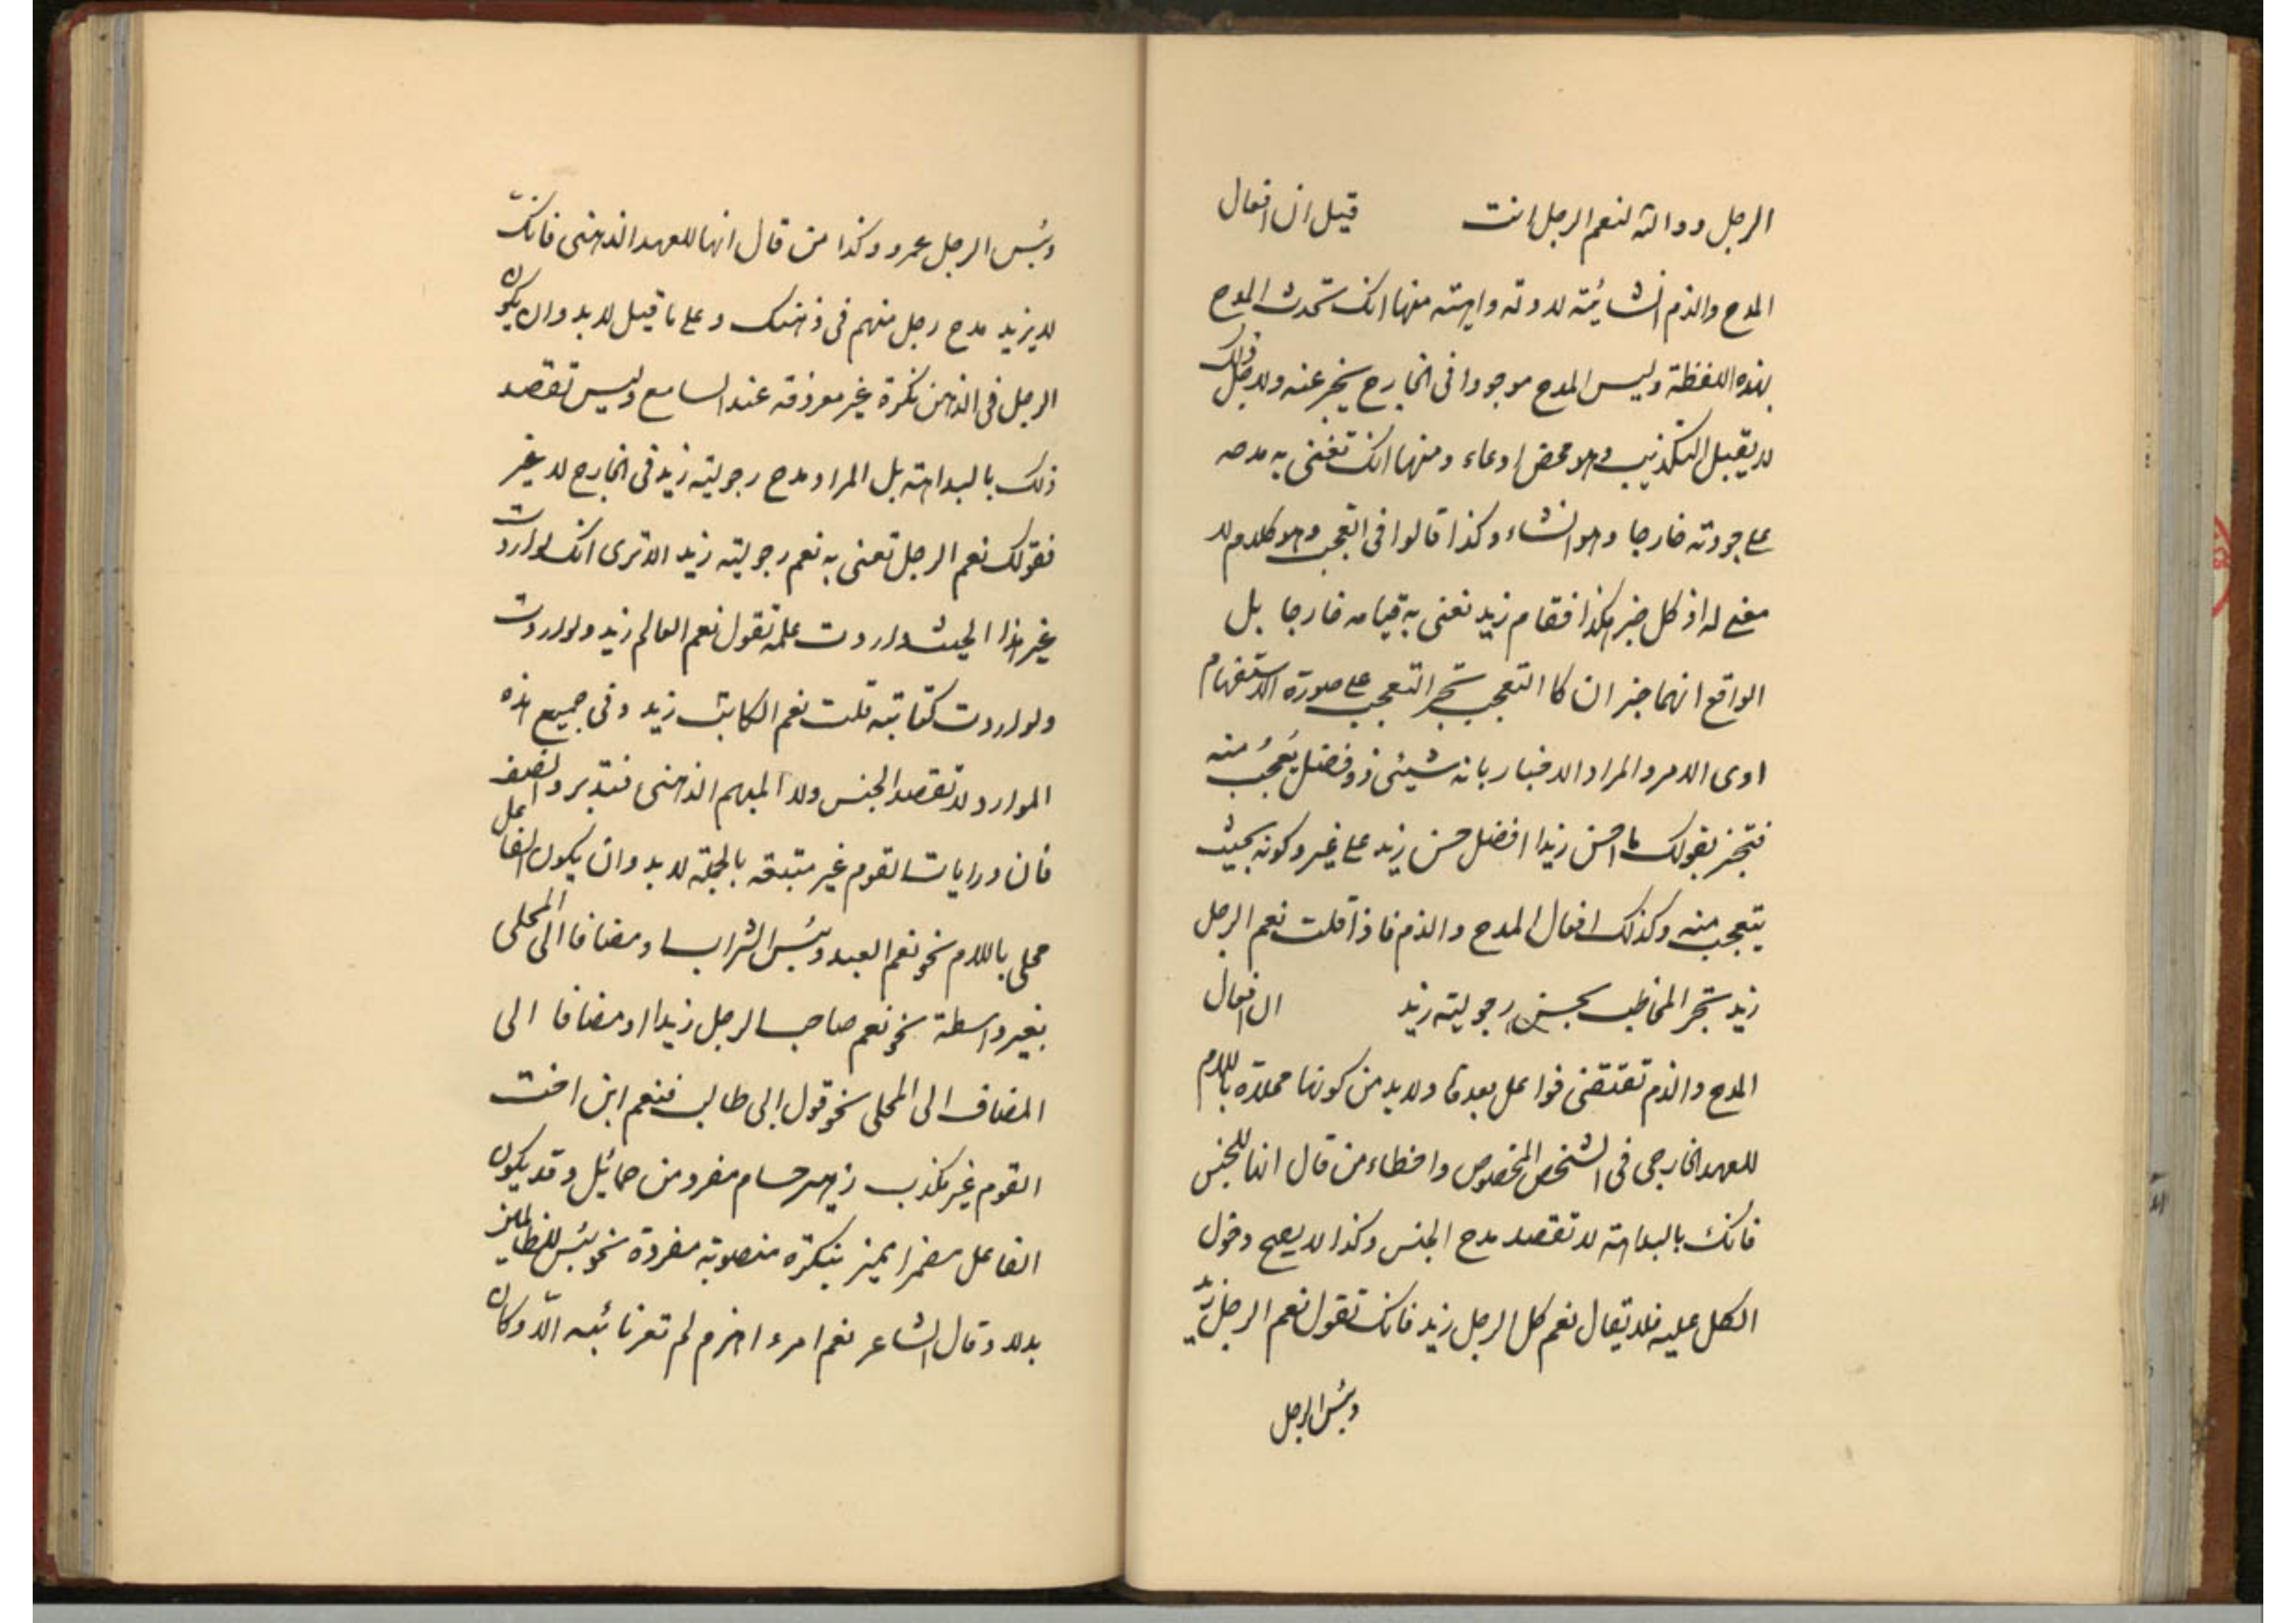 الرجل ووالله لنعم الرجل انت قيل ان افعال
المدح والذم انشائية لادلة واهية منها انك تحدث المدح
بهذه اللفظة وليس المدح موجودا في الخارج يخبر عنه ولاجل ذلك
لا يقبل التكذيب وهو محض ادعاء ومنها انك تعني به مدحه
على جودته خارجا وهو انشاء وكذا قالوا في التعجب وهو كلام لا
معنى له اذ كل خبر هكذا فقام زيد تعني به قيامه خارجا بل
الواقع انهما خبران كما التعجب تخبر التعجب على صورة الاستفهام
اوى الامر والمراد الاخبار بانه شيئي ذو فضل يُعجبُ منه
فتخبر بقولك ما احسن زيدا افضل حسن زيد على غيره وكونه بحيث
يتعجب منه وكذلك افعال المدح والذم فاذا قلت نعم الرجل
زيد تخبر المخاطب بحسن رجولية زيد ان افعال
المدح والذم تقتضي فواعل بعدها ولابد من كونها محلاة باللام
للعهد الخارجي في الشخص المخصوص واخطاء من قال انها للجنس
فانك بالبداهة لا تقصد مدح الجنس وكذا لا يصح دخول
الكل عليه فلا يقال نعم كل الرجل زيد فانك تقول نعم الرجل زيد
وبئس الرجل
وبئس الرجل عمرو وكذا من قال انها للعهد الذهني فانك
لا يزيد مدح رجل منهم في ذهنك وعلى ما قيل لابد وان يكون
الرجل في الذهن نكرة غير معروفة عند السامع وليس تقصد
ذلك بالبداهة بل المراد مدح رجولية زيد في الخارج لا غير
فقولك نعم الرجل تعني به نعم رجولية زيد الا ترى انك لو اردت
غير هذا الحيث واردت علمه تقول نعم العالم زيد ولو اردت
ولو اردت كتابته قلت نعم الكاتب زيد وفي جميع هذه
الموارد لا تقصد الجنس ولا المبهم الذهني فتدبر وانصف
فان درايات القوم غير متبعة بالجملة لابد وان يكون الفاعل
محلى باللام نحو نعم العبد وبئس الشراب او مضافا الى المحلى
بغير واسطة نحو نعم صاحب الرجل زيدا او مضافا الى
المضاف الى المحلى نحو قول ابى طالب فنعم ابن اخت
القوم غير مكذب زهير حسام مفرد من حمائل وقد يكون
الفاعل مضمرا يميز بنكرة منصوبة مفردة نحو بئس للظالمين
بدلا وقال الشاعر نعم امرء اهرم لم تعرنا ئبه الّا وكان